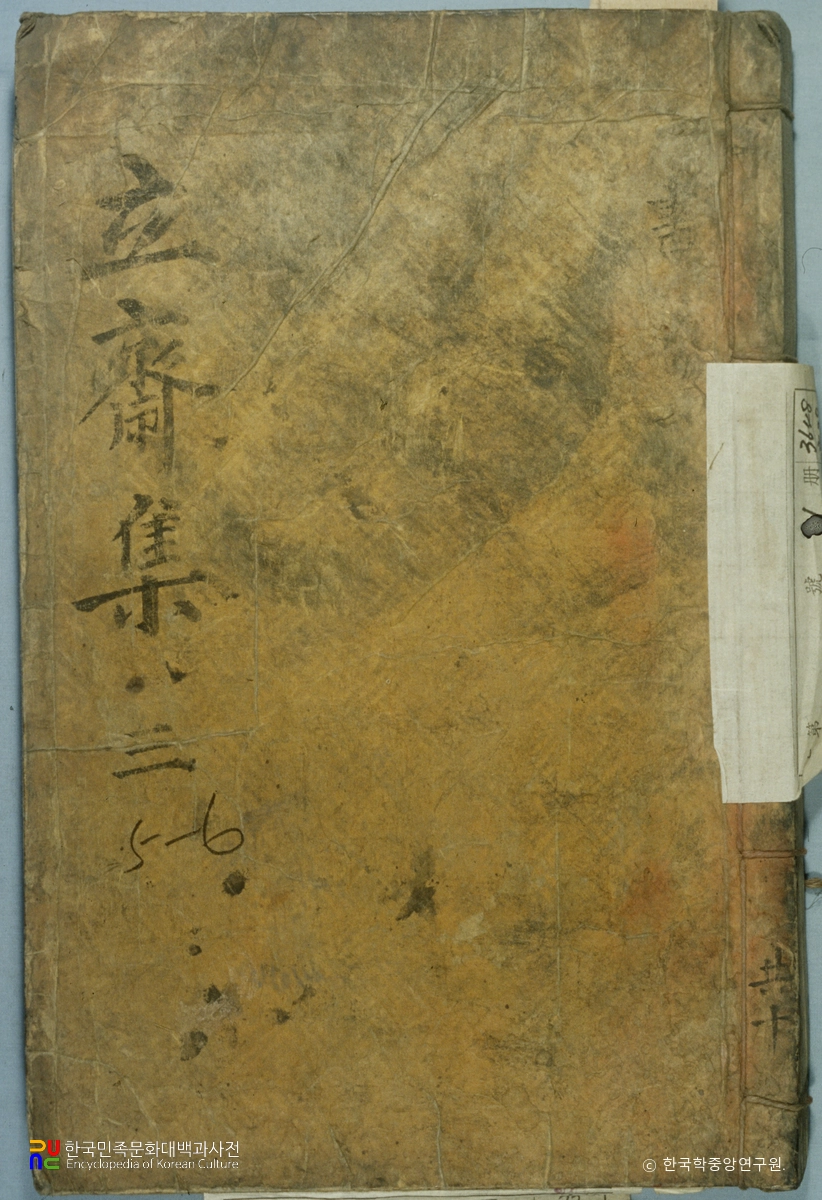 立齋集
三
5-6
書
共十
3648
册
號
第
한국민족문화대백과사전
Encyclopedia of Korean Culture
© 한국학중앙연구원.